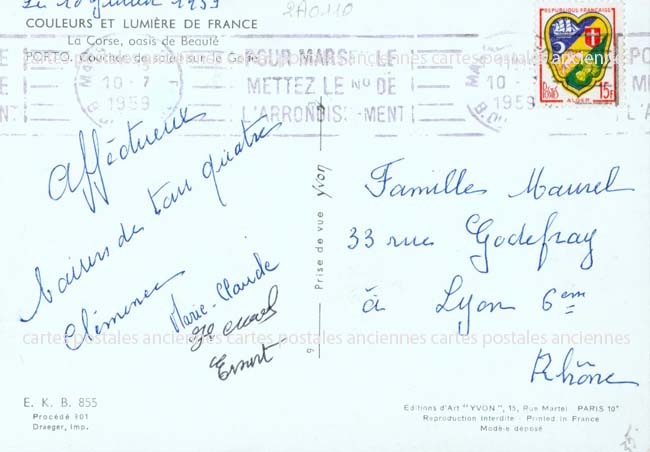 Le 10 Juillet 1959
2A0110
COULEURS ET LUMIÈRE DE FRANCE
La Corse, oasis de Beauté
PORTO. Coucher de soleil sur le Golfe
10-7
1959
POUR MARS LE
METTEZ LE No DE
L'ARRONDIS -MENT
10
1959
POU
METT
L'A
REPUBLIQUE FRANÇAISE
POSTES
15F
ALGER
cartes postales anciennes cartes postales anciennes
Affectueux
baisers de tous quatre
Clémence
Marie-Claude
Ernest
Prise de vue yvon
9
Familles Maurel
33 rue Godefray
à Lyon 6em
Rhône
cartes postales anciennes cartes postales anciennes
E. K. B. 855
Procédé 301
Draeger, Imp.
Editions d'Art "YVON", 15, Rue Martel PARIS 10e
Reproduction Interdite - Printed in France
Modèle déposé